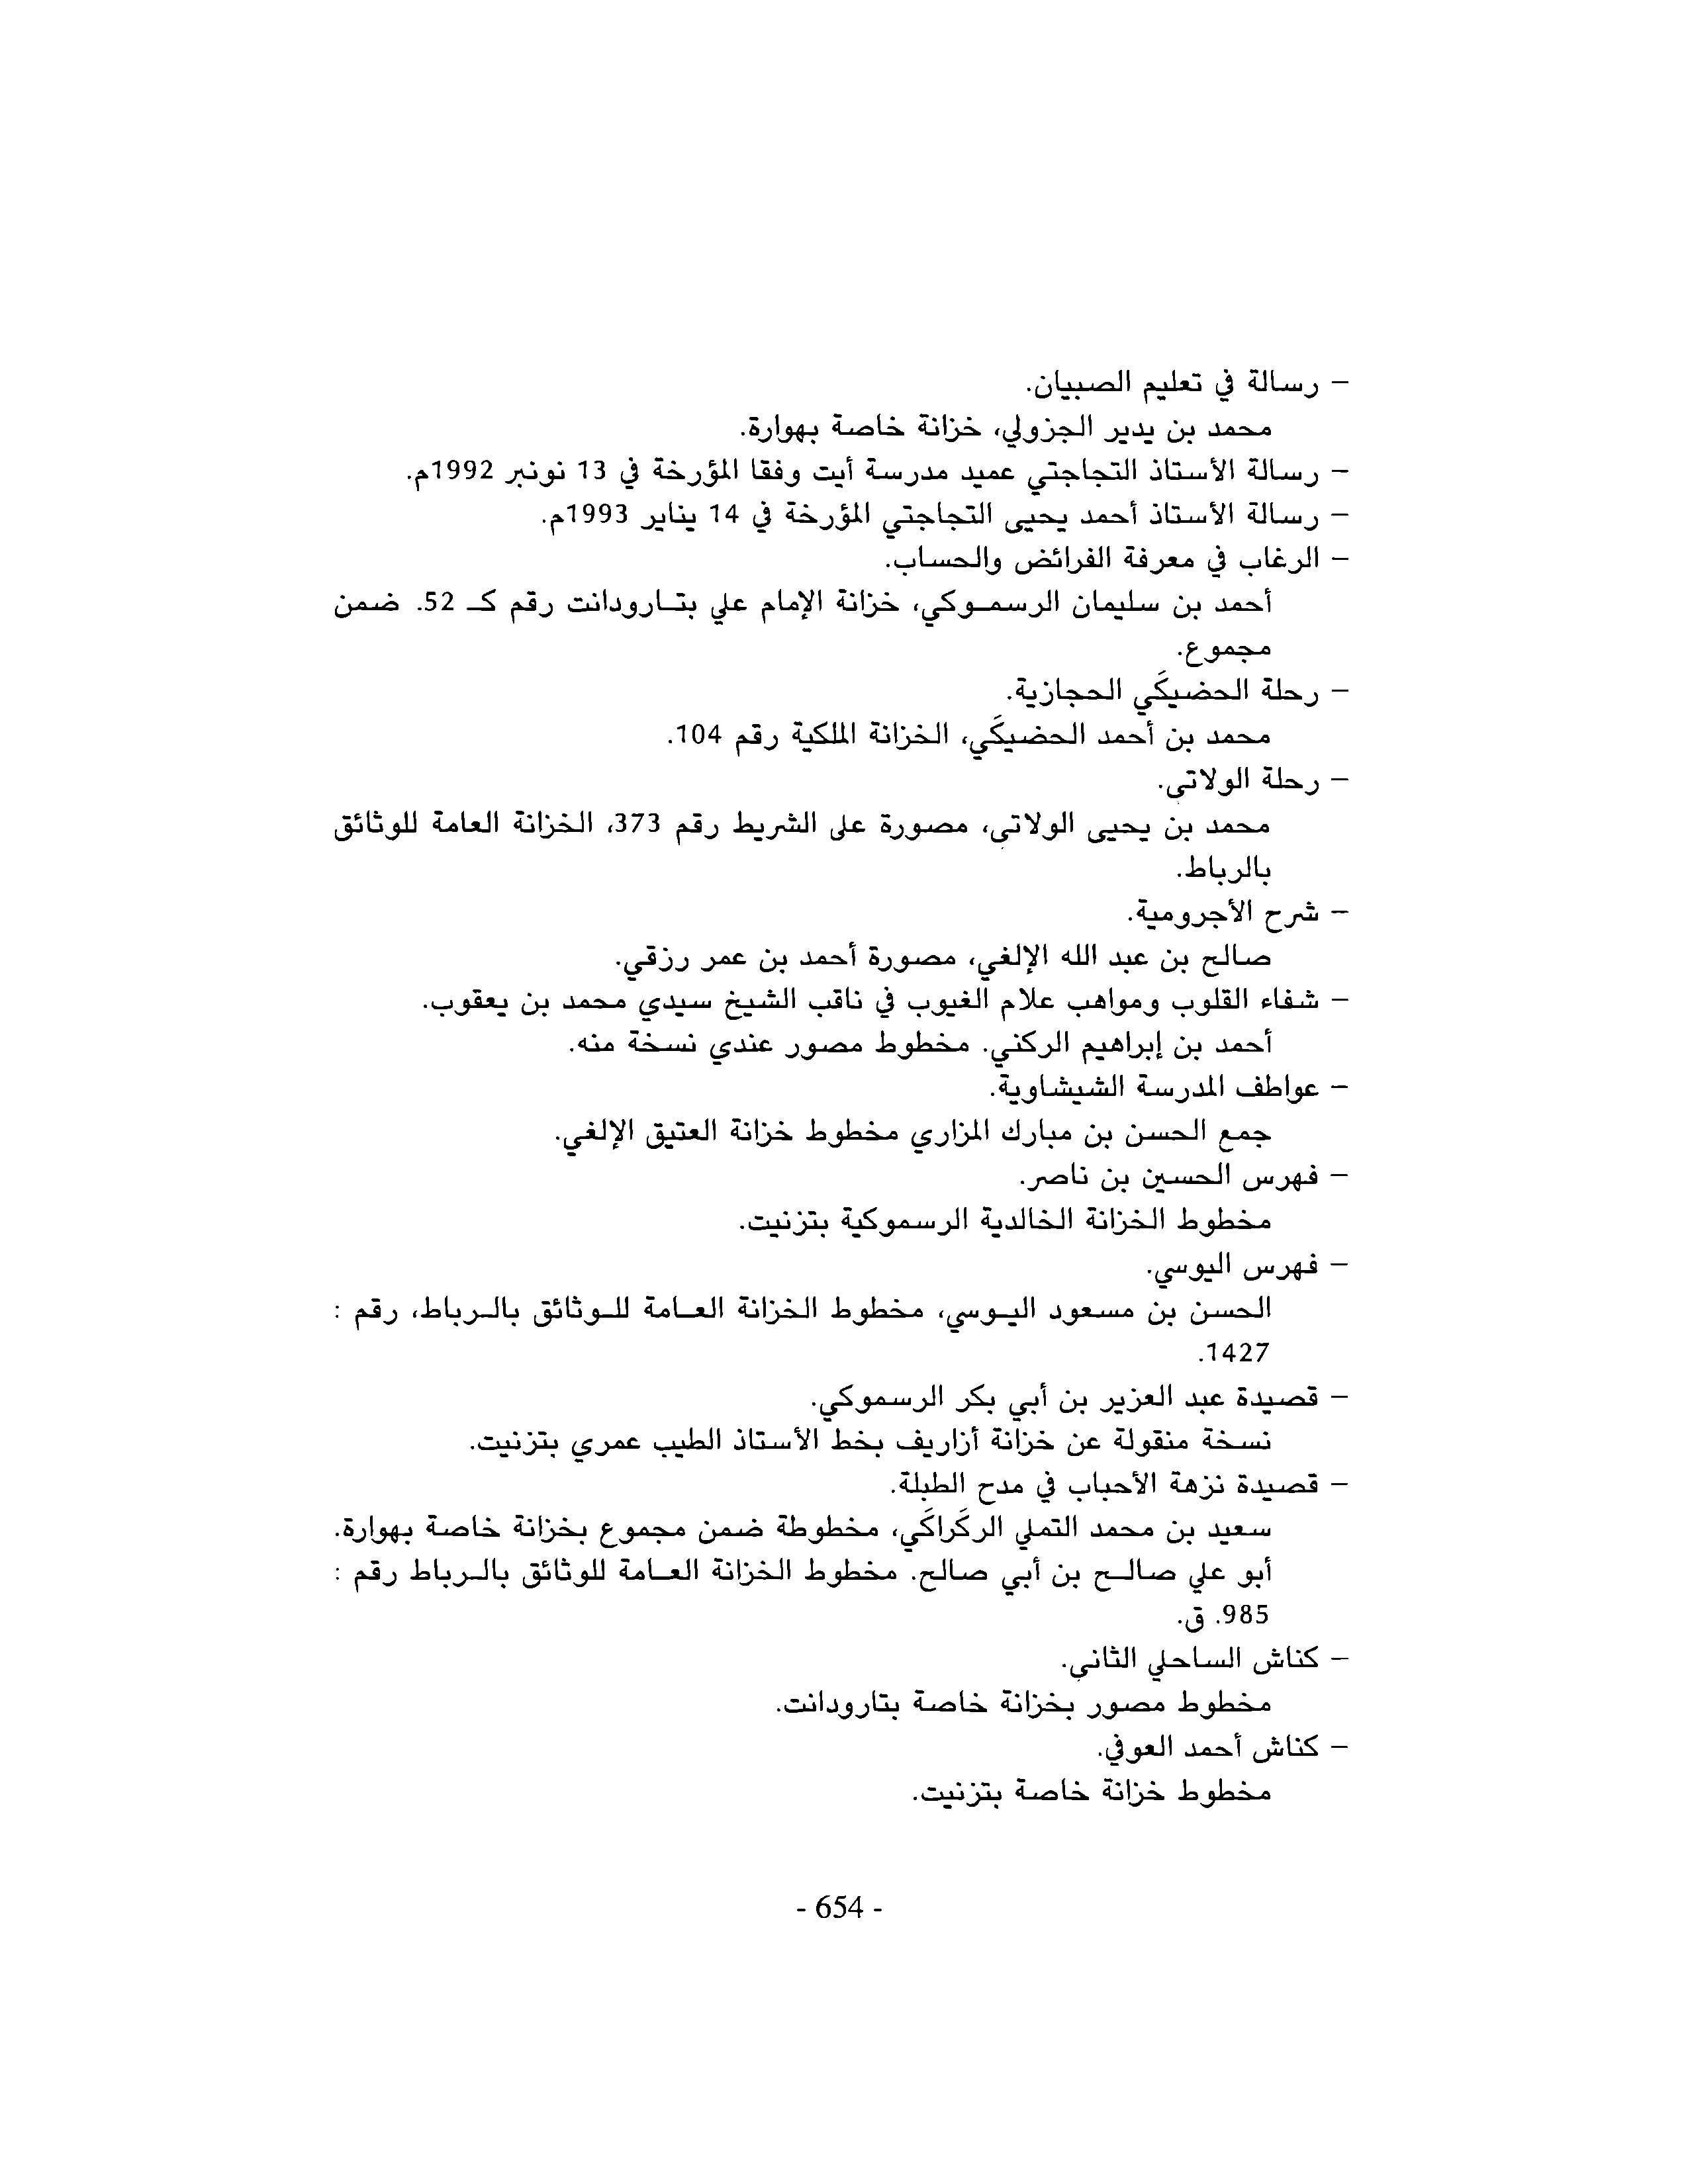 – رسالة في تعليم الصبيان.
محمد بن يدير الجزولي، خزانة خاصة بهوارة.
– رسالة الأستاذ التجاجتي عميد مدرسة أيت وفقا المؤرخة في 13 نونبر 1992م.
– رسالة الأستاذ أحمد يحيى التجاجتي المؤرخة في 14 يناير 1993م.
– الرغاب في معرفة الفرائض والحساب.
أحمد بن سليمان الرسموكي، خزانة الإمام علي بتارودانت رقم كـ 52. ضمن
مجموع.
– رحلة الحضيكَي الحجازية.
محمد بن أحمد الحضيكَي، الخزانة الملكية رقم 104.
– رحلة الولاتي.
محمد بن يحيى الولاتي، مصورة على الشريط رقم 373، الخزانة العامة للوثائق
بالرباط.
– شرح الأجرومية.
صالح بن عبد الله الإلغي، مصورة أحمد بن عمر رزقي.
– شفاء القلوب ومواهب علام الغيوب في ناقب الشيخ سيدي محمد بن يعقوب.
أحمد بن إبراهيم الركني. مخطوط مصور عندي نسخة منه.
– عواطف المدرسة الشيشاوية.
جمع الحسن بن مبارك المزاري مخطوط خزانة العتيق الإلغي.
– فهرس الحسين بن ناصر.
مخطوط الخزانة الخالدية الرسموكية بتزنيت.
– فهرس اليوسي.
الحسن بن مسعود اليوسي، مخطوط الخزانة العامة للوثائق بالرباط، رقم :
1427.
– قصيدة عبد العزير بن أبي بكر الرسموكي.
نسخة منقولة عن خزانة أزاريف بخط الأستاذ الطيب عمري بتزنيت.
– قصيدة نزهة الأحباب في مدح الطبلة.
سعيد بن محمد التملي الركَراكَي، مخطوطة ضمن مجموع بخزانة خاصة بهوارة.
أبو علي صالح بن أبي صالح. مخطوط الخزانة العامة للوثائق بالرباط رقم :
985. ق.
– كناش الساحلي الثاني.
مخطوط مصور بخزانة خاصة بتارودانت.
– كناش أحمد العوفي.
مخطوط خزانة خاصة بتزنيت.
- 654 -